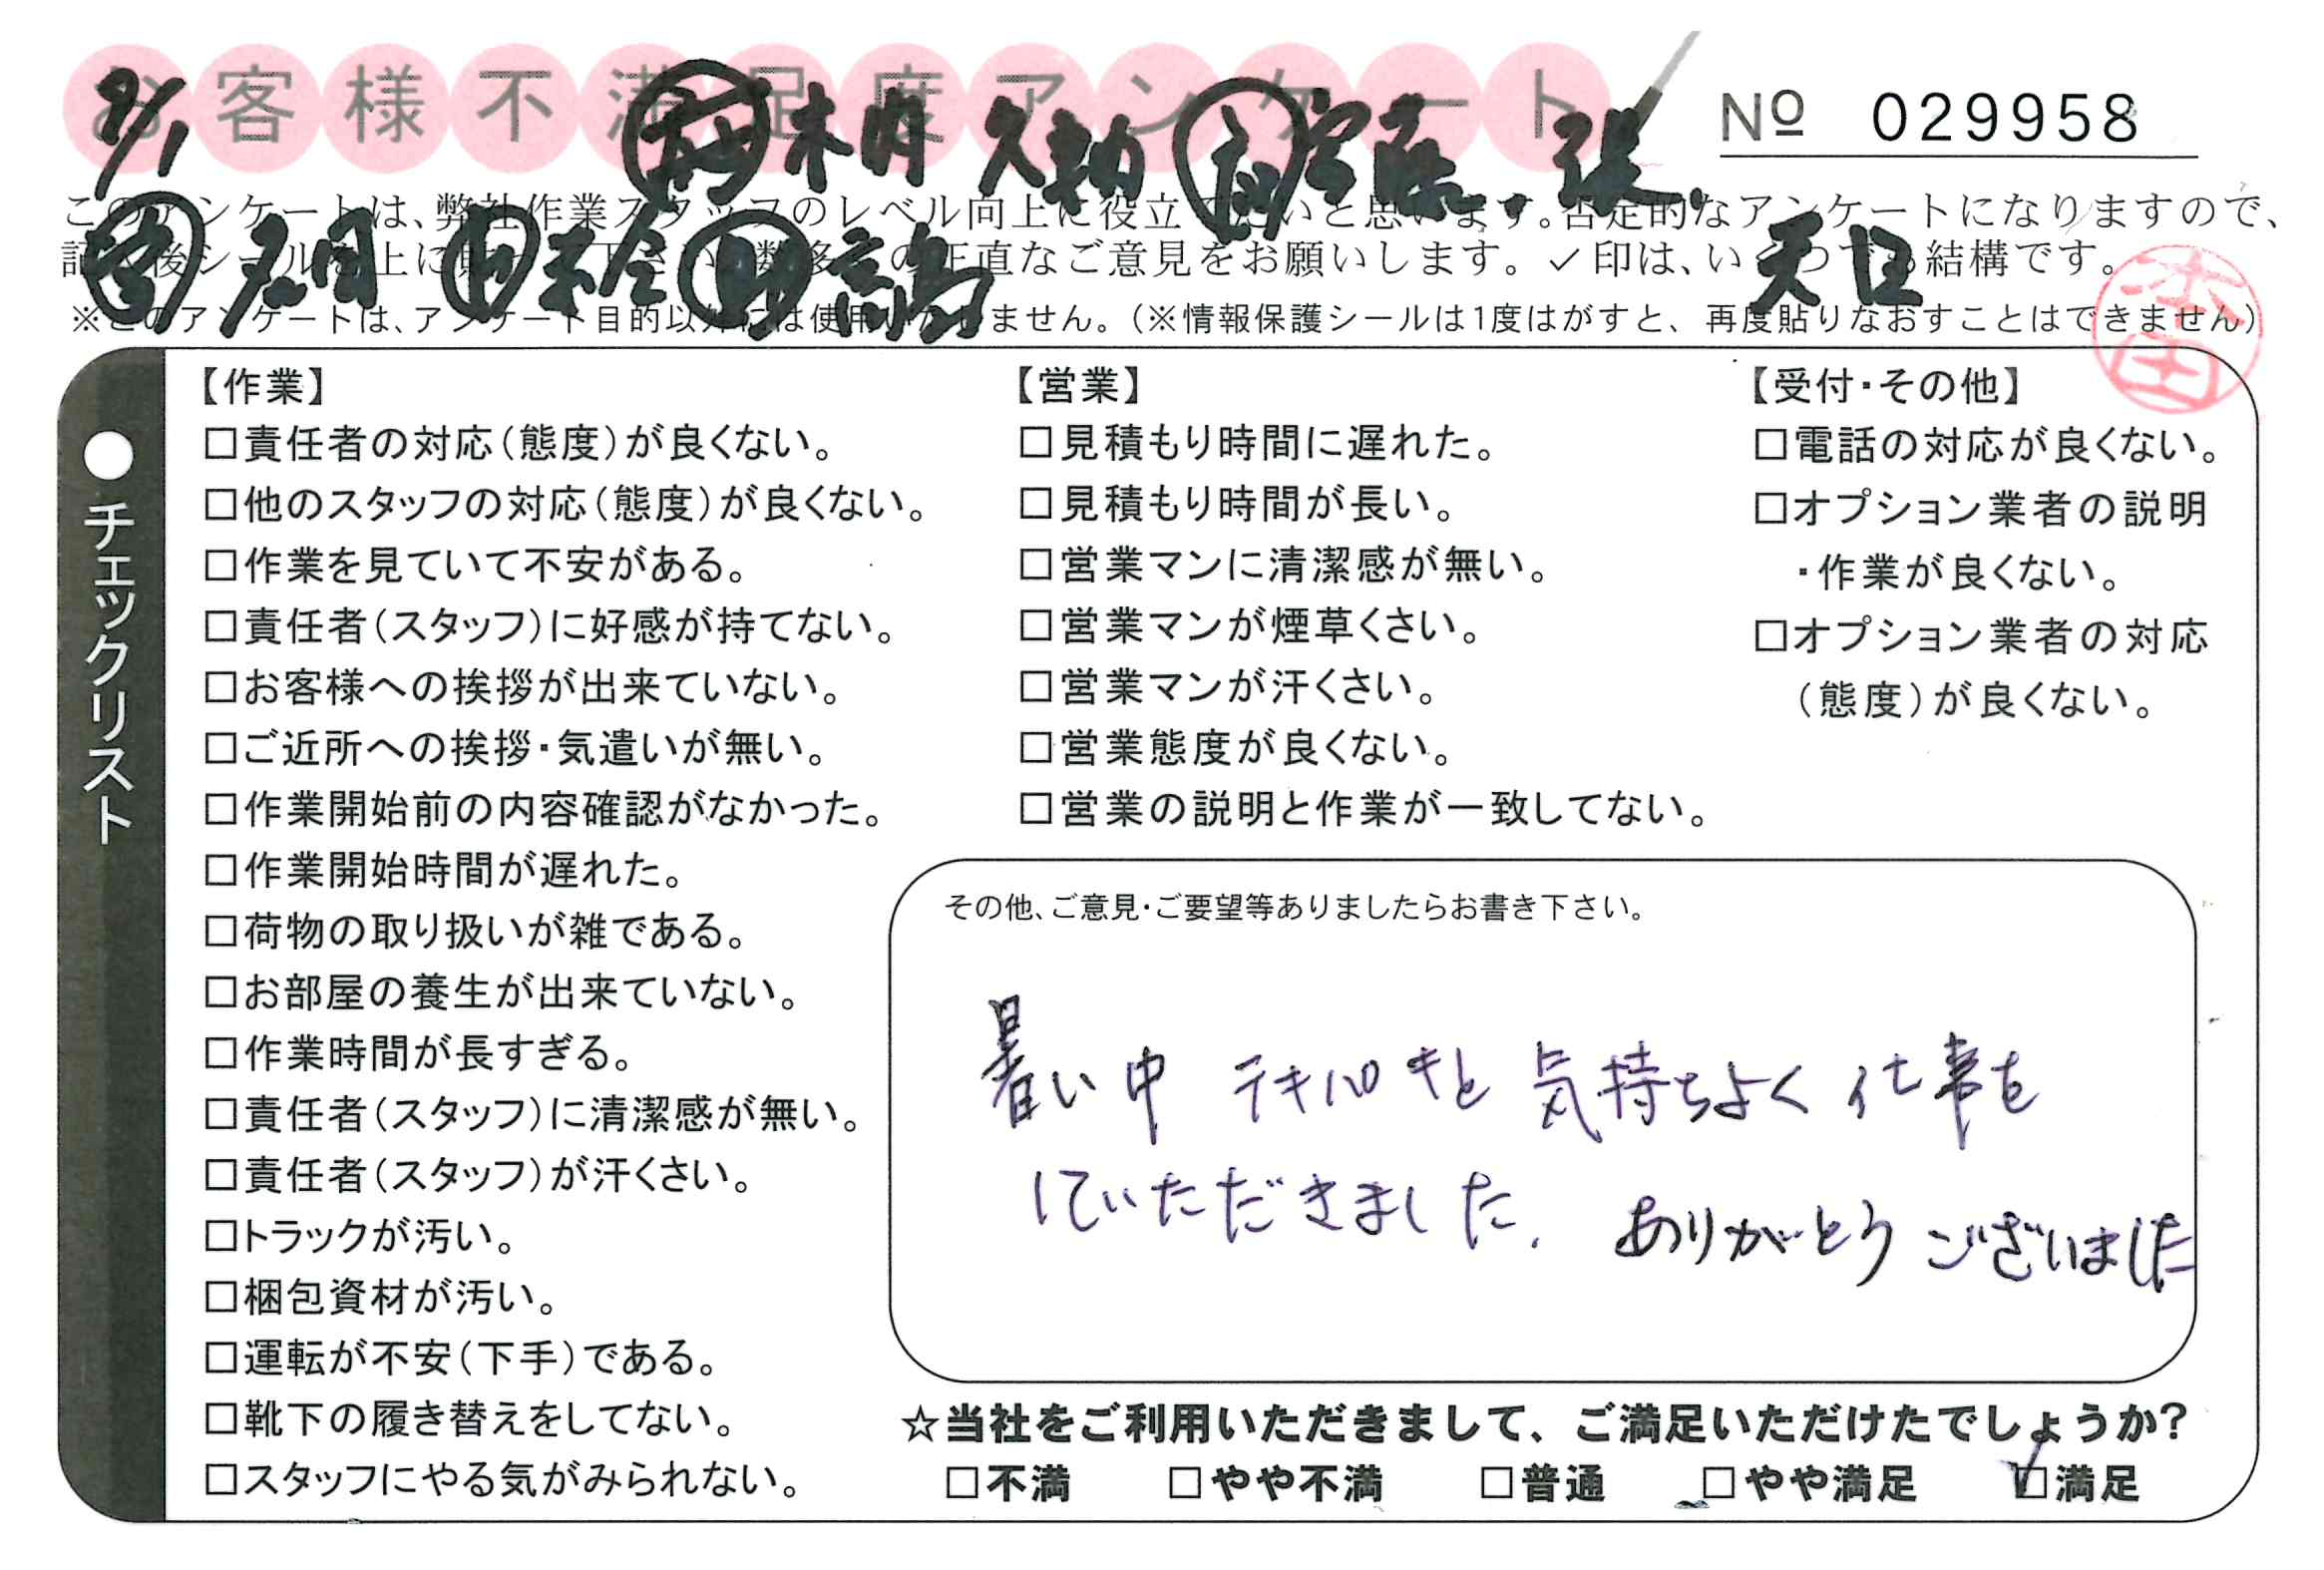 お客様不満足度アンケート
№ 029958
このアンケートは、弊社作業スタッフのレベル向上に役立てたいと思います。否定的なアンケートになりますので、
記入後シールを上に貼って下さい。数多くの正直なご意見をお願いします。✓印は、いくつでも結構です。
※このアンケートは、アンケート目的以外には使用いたしません。（※情報保護シールは1度はがすと、再度貼りなおすことはできません）
9/1
天田
●チェックリスト
【作業】
□責任者の対応（態度）が良くない。
□他のスタッフの対応（態度）が良くない。
□作業を見ていて不安がある。
□責任者（スタッフ）に好感が持てない。
□お客様への挨拶が出来ていない。
□ご近所への挨拶・気遣いが無い。
□作業開始前の内容確認がなかった。
□作業開始時間が遅れた。
□荷物の取り扱いが雑である。
□お部屋の養生が出来ていない。
□作業時間が長すぎる。
□責任者（スタッフ）に清潔感が無い。
□責任者（スタッフ）が汗くさい。
□トラックが汚い。
□梱包資材が汚い。
□運転が不安（下手）である。
□靴下の履き替えをしてない。
□スタッフにやる気がみられない。
【営業】
□見積もり時間に遅れた。
□見積もり時間が長い。
□営業マンに清潔感が無い。
□営業マンが煙草くさい。
□営業マンが汗くさい。
□営業態度が良くない。
□営業の説明と作業が一致してない。
【受付・その他】
□電話の対応が良くない。
□オプション業者の説明
・作業が良くない。
□オプション業者の対応
（態度）が良くない。
その他、ご意見・ご要望等ありましたらお書き下さい。
暑い中 テキパキと 気持ちよく 仕事を
していただきました。ありがとう ございました
☆当社をご利用いただきまして、ご満足いただけたでしょうか？
□不満 □やや不満 □普通 □やや満足 ☑満足